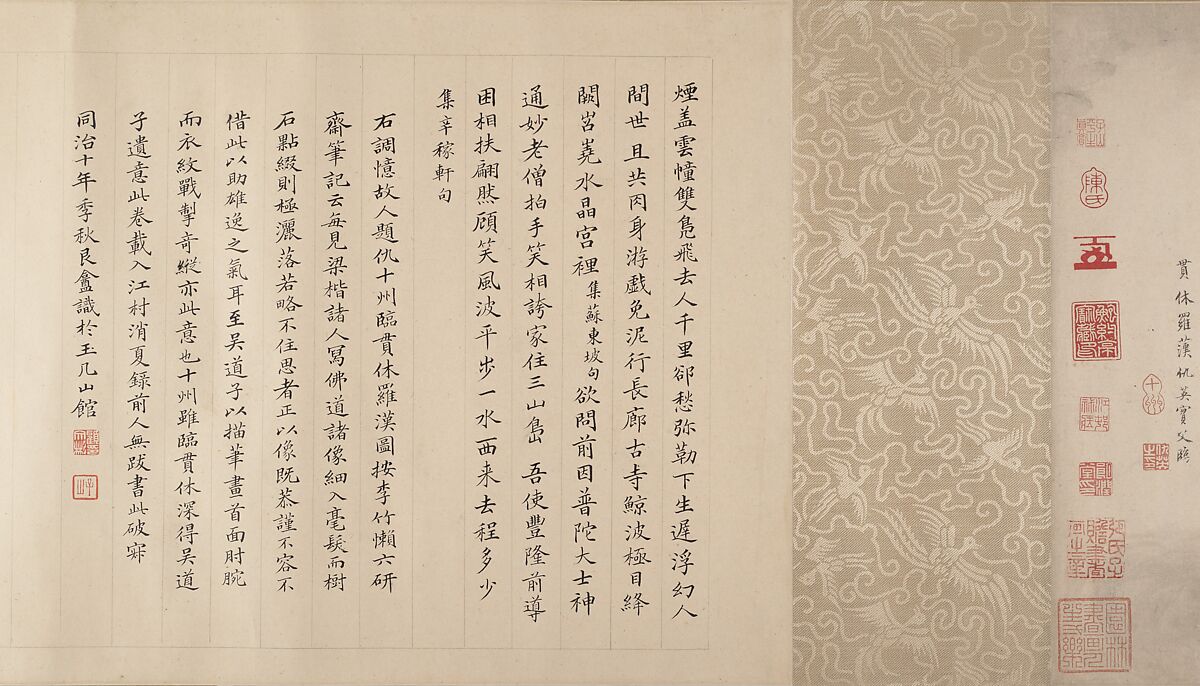 貫休羅漢仇英實父臨
十洲
陳氏
煙蓋雲幢雙鳧飛去人千里郤愁弥勒下生遲浮幻人
間世且共肉身游戲免泥行長廊古寺鯨波極目絳
闕岧嶤水晶宮裡集蘇東坡句欲問前因普陀大士神
通妙老僧拍手笑相誇家住三山島 吾使豐隆前導
困相扶翩然顧笑風波平步一水西来去程多少
集辛稼軒句
右調憶故人題仇十州臨貫休羅漢圖按李竹懶六研
齋筆記云每見梁楷諸人寫佛道諸像細入毫髮而樹
石點綴則極灑落若略不住思者正以像既恭謹不容不
借此以助雄逸之氣耳至吳道子以描筆畫首面肘腕
而衣紋戰掣奇縱亦此意也十州雖臨貫休深得吳道
子遺意此卷載入江村消夏錄前人無跋書此破寂
同治十年季秋艮盦識於玉几山館